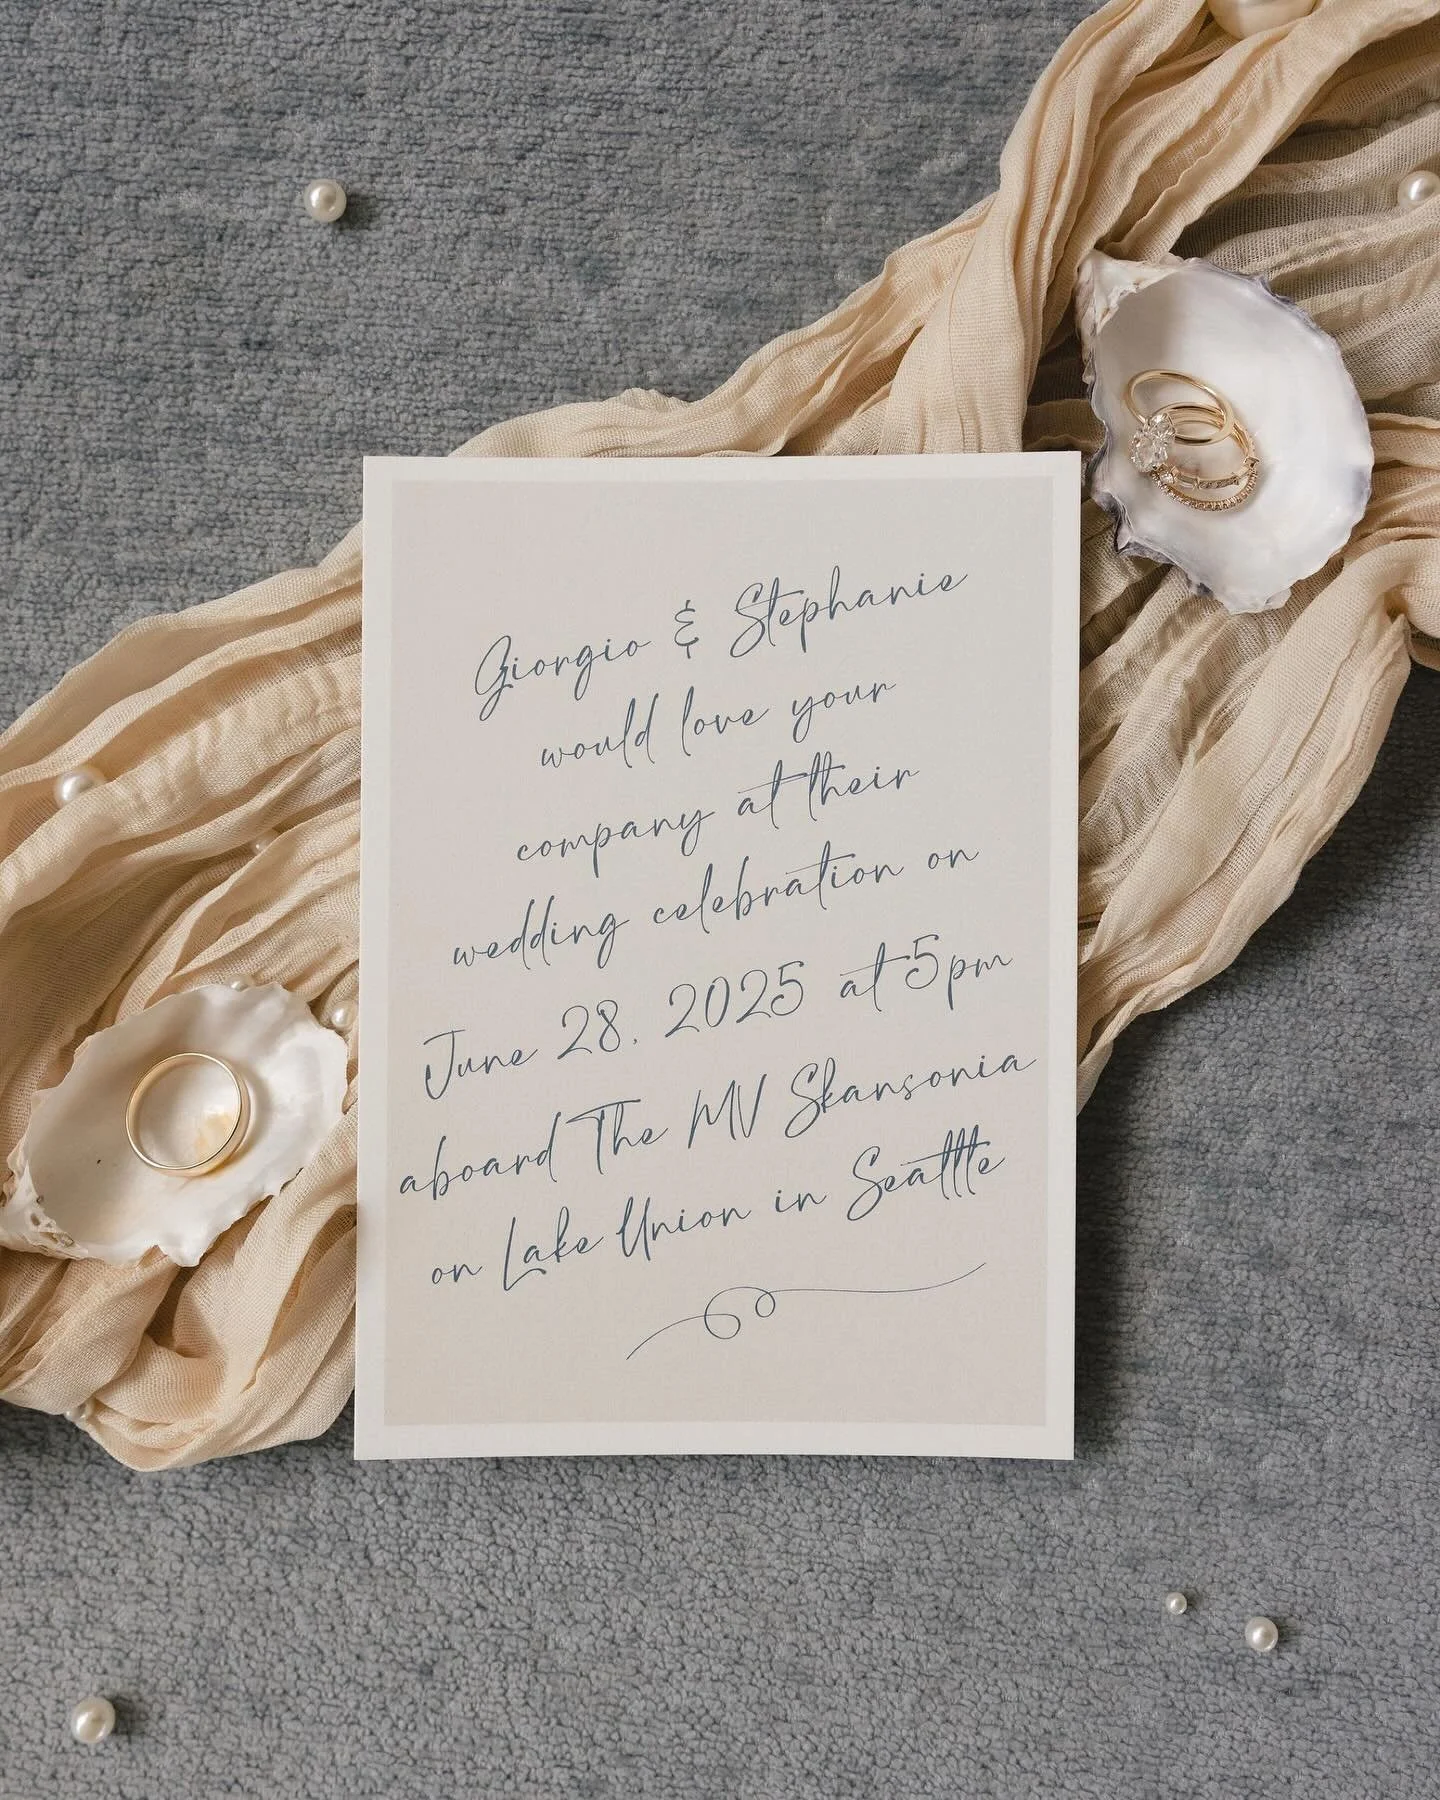 Giorgio & Stephanie
would love your
company at their
wedding celebration on
June 28, 2025 at 5pm
aboard The MV Skansonia
on Lake Union in Seattle